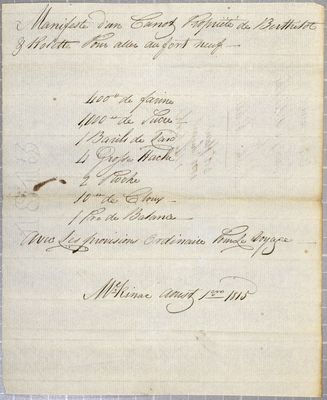 Manifeste d'un Canot Propriété de Berthelot
& Rolette Pour aller au fort neuf
400 lb de farine
400 lb de Sucre
1 Barils de Lard
4 Grosse Hache
2 Pioche
10 lb de Clous
1 Pre de Balance
avec Les provisions Ordinaire Pour Le Voyage
McKinac Aoust 1ero 1815